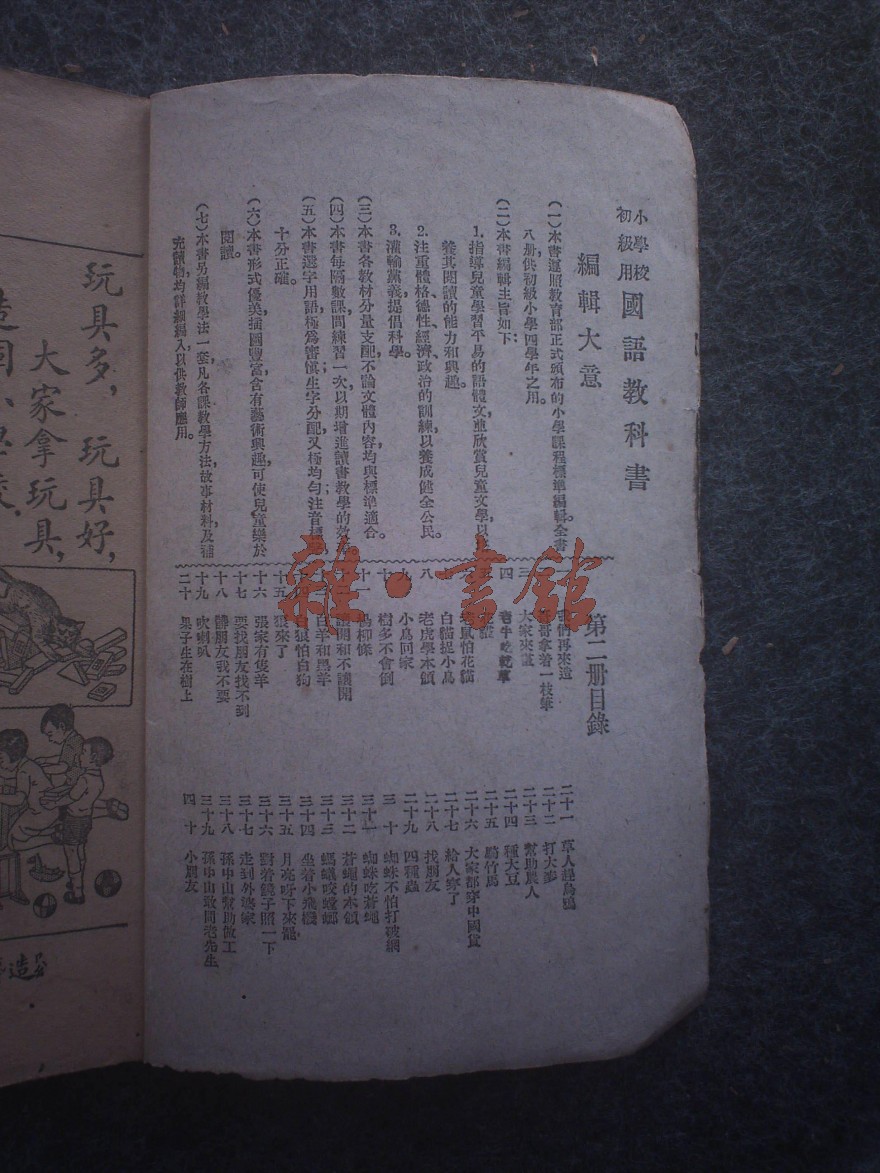 小學校
初級用
國語教科書
編輯大意
(一)本書遵照教育部正式頒布的小學課程標準編輯全書
八册供初級小學四學年之用。
(二)本書編輯主旨如下:
1. 指導兒童學習平易的語體文並欣賞兒童文學以
養其閱讀的能力和興趣。
2. 注重體格德性經濟政治的訓練以養成健全公民。
3. 灌輸黨義提倡科學。
(三)本書各教材分量支配不論文體內容均與標準適合。
(四)本書每隔數課間練習一次以期增進讀書教學的效
(五)本書選字用語極爲審慎生字分配又極均勻注音標
十分正確。
(六)本書形式優美插圖豐富含有藝術興趣可使兒童樂於
閱讀。
(七)本書另編教學法一套凡各課教學方法故事材料及補
充讀物均詳細編入以供教師應用。
第二册目錄
我們再來造
哥拿着一枝筆
三 大家來畫
四 老牛吃乾草
鼠怕花貓
白貓捉小鳥
八 老虎學本領
九 小鳥回家
十 樹多不會倒
十一 鳥柳條
讓開和不讓開
白羊和黑羊
狼怕白狗
十五 狼來了
十六 張家有隻羊
十七 要找朋友找不到
十八 髒朋友我不要
十九 吹喇叭
二十 果子生在樹上
二十一 草人趕烏鴉
二十二 打大麥
二十三 幫助農人
二十四 種大豆
二十五 騎竹馬
二十六 大家都穿中國貨
二十七 給人穿了
二十八 找朋友
二十九 四種蟲
三十 蜘蛛不怕打破網
三十一 蜘蛛吃蒼蠅
三十二 蒼蠅的本領
三十三 螞蟻咬螳螂
三十四 坐着小飛機
三十五 月亮呀下來罷
三十六 對着鏡子照一下
三十七 走到外婆家
三十八 孫中山幫助做工
三十九 孫中山敢問老先生
四十 小朋友
雜·書館
玩具多,玩具好,
大家拿玩具,
造